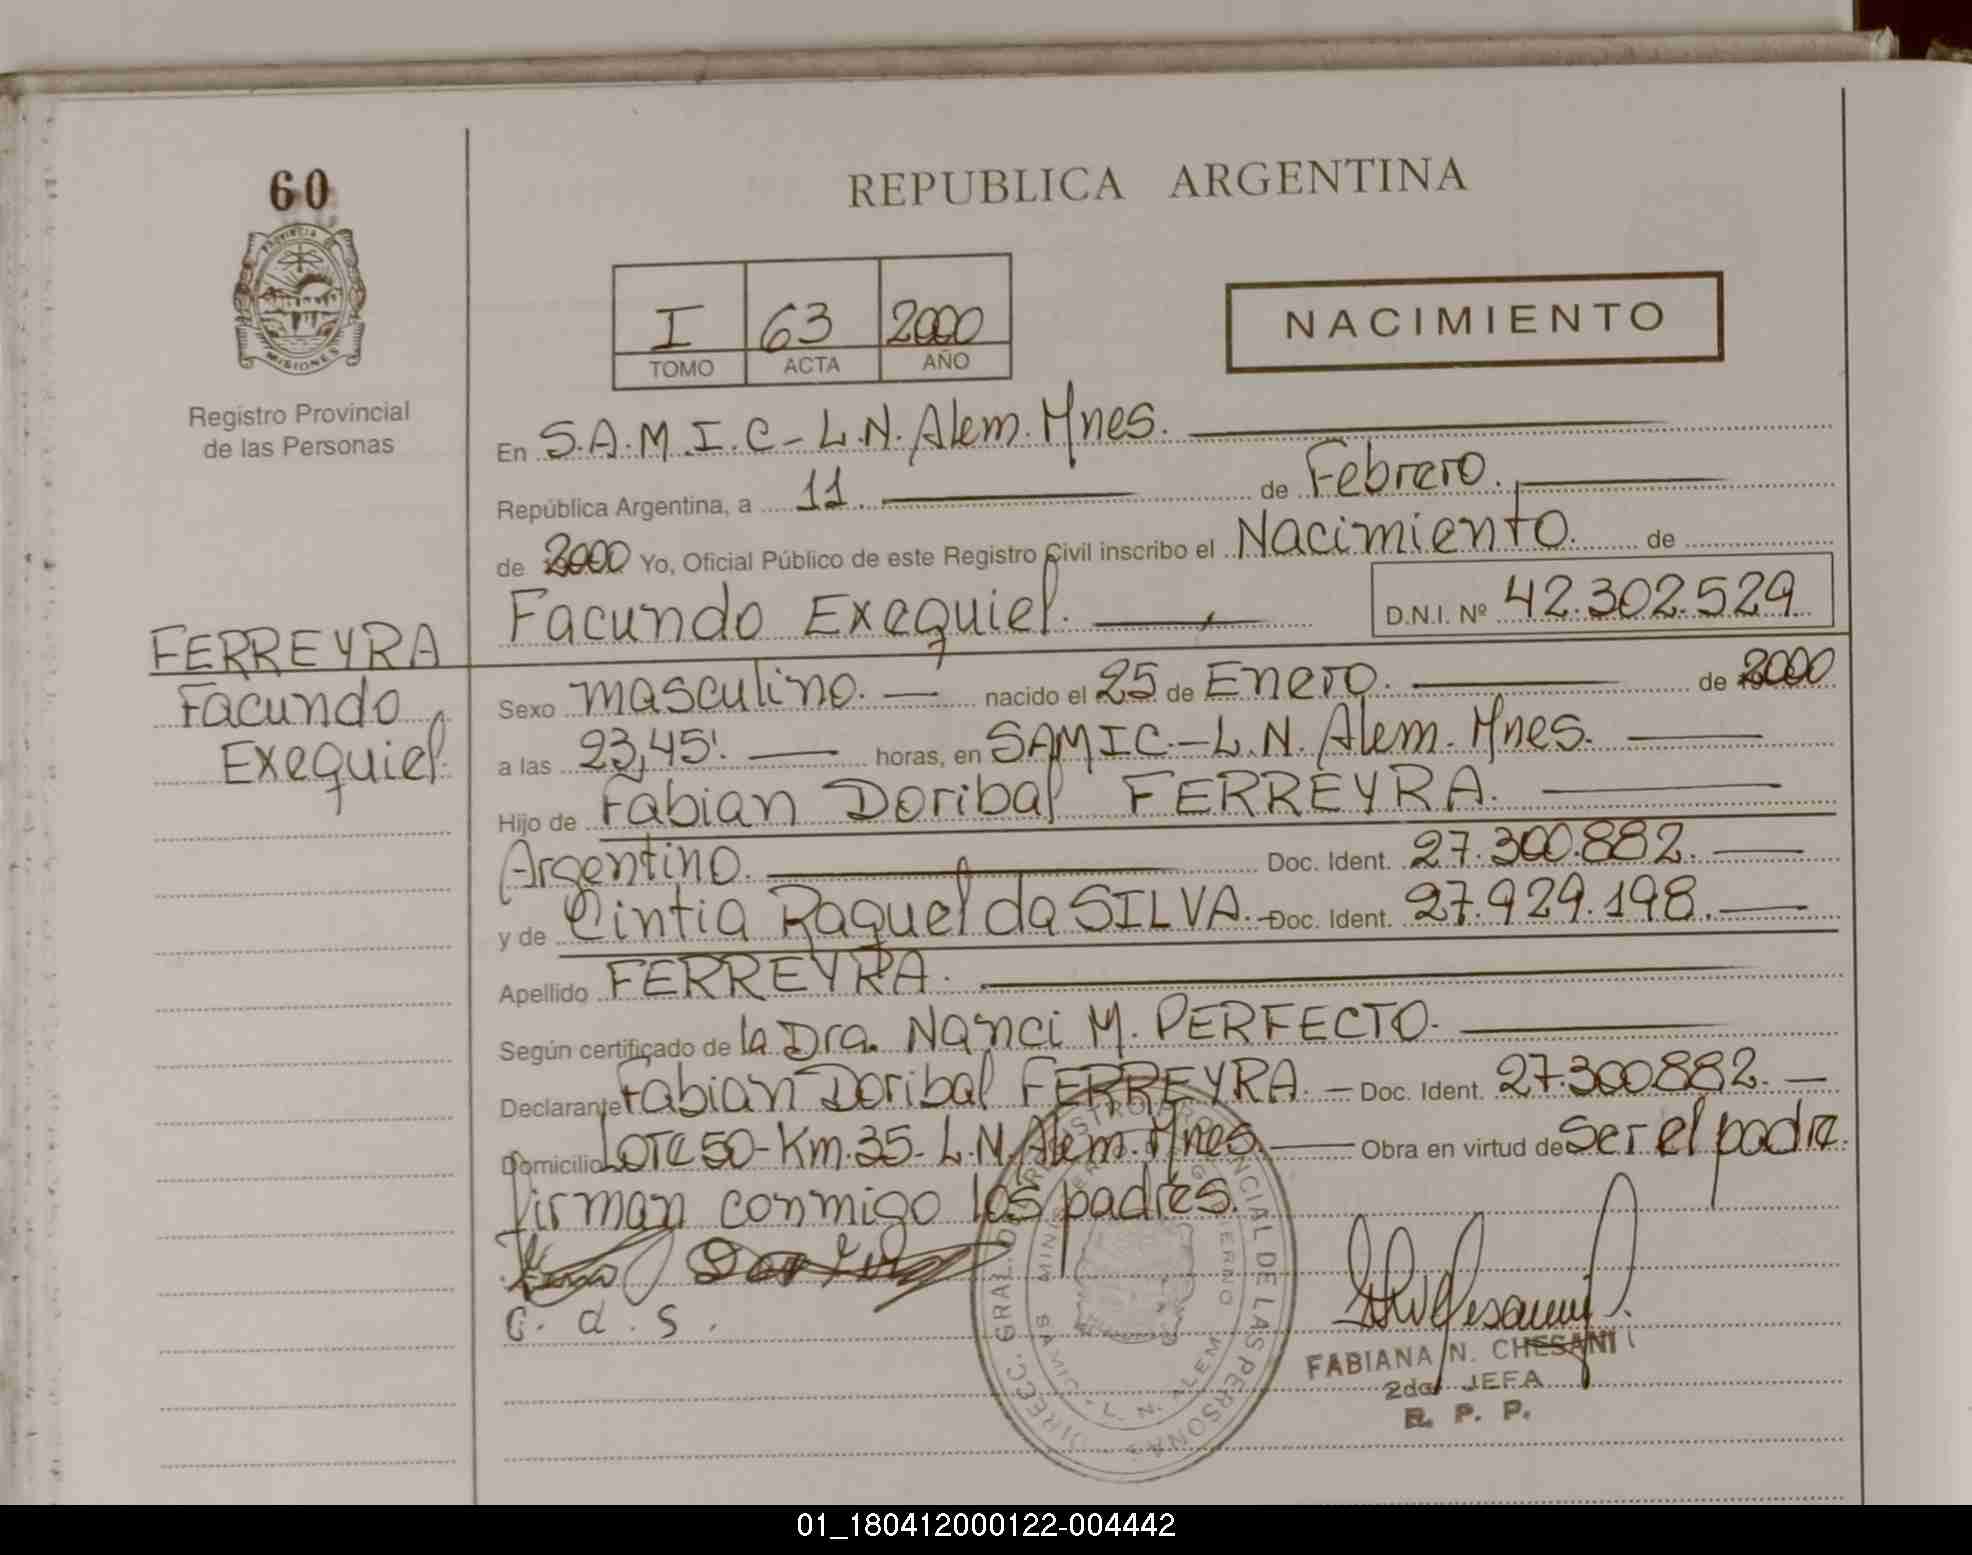 60
PROVINCIA DE
MISIONES
Registro Provincial
de las Personas
FERREYRA
Facundo
Exequiel.
REPUBLICA ARGENTINA
I 63 2000
TOMO ACTA AÑO
NACIMIENTO
En S.A.M.I.C - L.N. Alem. Mnes.
República Argentina, a 11. de Febrero.
de 2000 Yo, Oficial Público de este Registro Civil inscribo el Nacimiento. de
Facundo Exequiel. D.N.I. Nº 42.302.529
Sexo masculino. nacido el 25 de Enero. de 2000
a las 23,45'. horas, en SAMIC.-L.N. Alem. Mnes.
Hijo de Fabian Doribal FERREYRA.
Argentino. Doc. Ident. 27.300.882.
y de Cintia Raquel da SILVA. - Doc. Ident. 27.929.198.
Apellido FERREYRA.
Según certificado de la Dra. Nanci M. PERFECTO.
Declarante Fabian Doribal FERREYRA. - Doc. Ident. 27.300.882.
Domicilio Lote 50 - Km. 35 - L.N. Alem. Mnes. Obra en virtud de Ser el padre.
firman conmigo los padres.
C. d. S.
DIRECC. GRAL. DEL REGISTRO PROVINCIAL DE LAS PERSONAS
MINISTERIO DE GOBIERNO
SAMIC. L. N. ALEM
FABIANA N. CHESANI
2da JEFA
R. P. P.
01_180412000122-004442